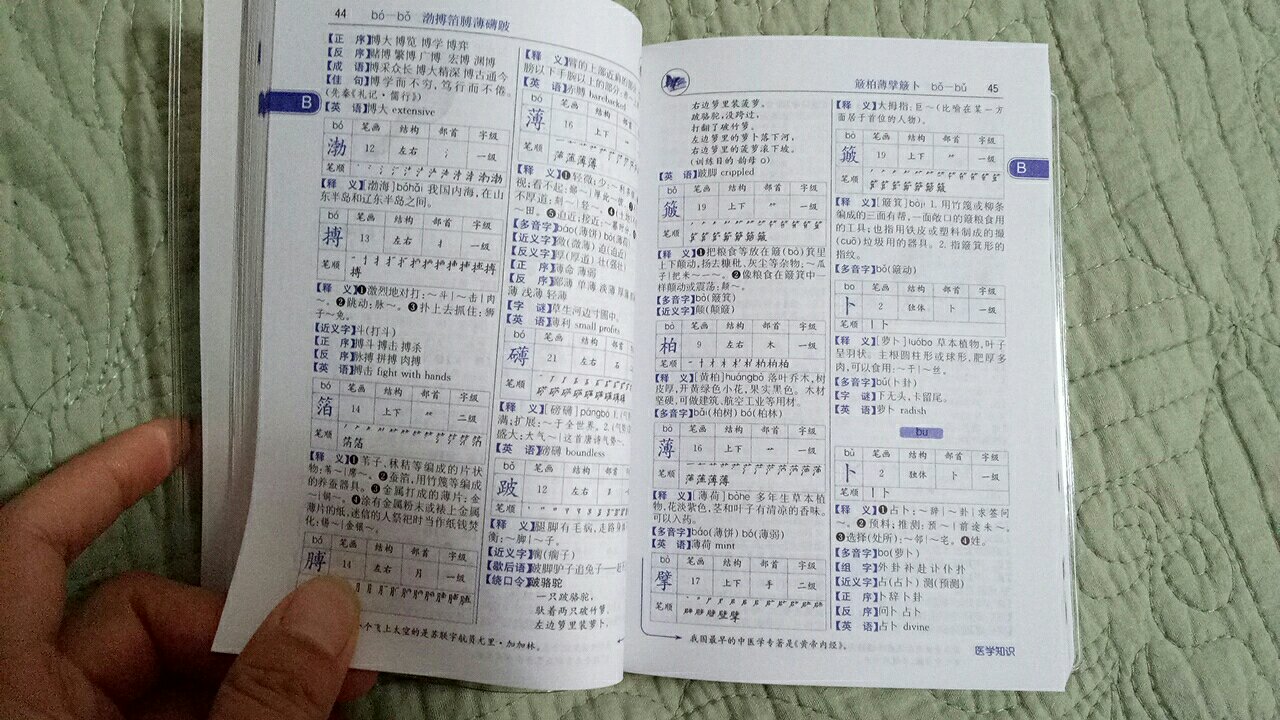 44 bó—bǒ 渤搏箔膊薄礴跛
【正 序】博大 博览 博学 博弈
【反 序】赌博 繁博 广博 宏博 渊博
【成 语】博采众长 博大精深 博古通今
【佳 句】博学而不穷，笃行而不倦。
(先秦《礼记·儒行》)
【英 语】博大 extensive
B
bó 笔画 结构 部首 字级
渤 12 左右 氵 一级
笔顺
【释 义】[渤海]bóhǎi 我国内海，在山
东半岛和辽东半岛之间。
bó 笔画 结构 部首 字级
搏 13 左右 扌 一级
笔顺
【释 义】❶激烈地对打：～斗|～击|肉
～。❷跳动：脉～。❸扑上去抓住：狮
子～兔。
【近义字】斗(打斗)
【正 序】搏斗 搏击 搏杀
【反 序】脉搏 拼搏 肉搏
【英 语】搏击 fight with hands
bó 笔画 结构 部首 字级
箔 14 上下 ⺮ 二级
笔顺
【释 义】❶苇子、秫秸等编成的片状
物：苇～|席～。❷蚕箔，用竹篾等编成
的养蚕器具。❸金属打成的薄片：金
～|锡～。❹涂有金属粉末或裱上金属
薄片的纸，迷信的人祭祀时当作纸钱焚
化：锡～|金银～。
bó 笔画 结构 部首 字级
膊 14 左右 月 一级
个飞上太空的是苏联宇航员尤里·加加林。
【释 义】臂的上部近肩的部
膀以下手腕以上的部分
【英 语】赤膊 barebacked
bó 笔画 结构 部首
薄 16 上下
【多音字】báo(薄饼) bò(薄荷)
【近义字】微(微薄) 迫(迫近)
【反义字】厚(厚道) 壮(强壮)
【正 序】薄命 薄弱
【反 序】鄙薄 单薄 淡薄 厚薄
薄 浅薄 轻薄
【字 谜】草生河边寸圃中。
【英 语】薄利 small profits
bó 笔画 结构 部首
礴 21 左右 石
【释 义】[磅礴]pángbó 1.(气
满；扩展：～于全世界。2.(气势)
盛大：大气～|这首唐诗气势～。
【英 语】磅礴 boundless
bǒ 笔画 结构 部首
跛 12 左右
【释 义】腿脚有毛病，走路身体
衡：～脚|～子。
【近义字】瘸(瘸子)
【歇后语】跛脚驴子追兔子——
【绕口令】跛骆驼
一只跛骆驼，
驮着两只破竹箩，
左边箩里装萝卜，
簸柏薄擘簸卜 bǒ—bǔ 45
右边箩里装菠萝，
跛骆驼，没跨过，
打翻了破竹箩。
左边箩里的萝卜落下河，
右边箩里的菠萝滚下坡。
(训练目的 韵母 o)
【英 语】跛脚 crippled
bǒ 笔画 结构 部首 字级
簸 19 上下 ⺮ 一级
笔顺
【释 义】❶把粮食等放在簸(bò)箕里
上下颠动，扬去糠秕、灰尘等杂物：～瓜
子|把米～一～。❷像粮食在簸箕中一
样颠动或震荡：颠～。
【多音字】bò(簸箕)
【近义字】颠(颠簸)
bò 笔画 结构 部首 字级
柏 9 左右 木 一级
笔顺
【释 义】[黄柏]huángbò 落叶乔木，树
皮厚，开黄绿色小花，果实黑色。木材
坚硬，可做建筑、航空工业等用材。
【多音字】bǎi(柏树) bó(柏林)
bò 笔画 结构 部首 字级
薄 16 上下 艹 一级
笔顺
【释 义】[薄荷]bòhe 多年生草本植
物，花淡紫色，茎和叶子有清凉的香味。
可以入药。
【多音字】báo(薄饼) bó(薄弱)
【英 语】薄荷 mint
bò 笔画 结构 部首 字级
擘 17 上下 手 二级
笔顺
我国最早的中医学专著是《黄帝内经》。
【释 义】大拇指：巨～(比喻在某一方
面居于首位的人物)。
bò 笔画 结构 部首 字级
簸 19 上下 ⺮ 一级
笔顺
【释 义】[簸箕]bòji 1.用竹篾或柳条
编成的三面有帮、一面敞口的簸粮食用
的工具；也指用铁皮或塑料制成的撮
(cuō)垃圾用的器具。2.指簸箕形的
指纹。
【多音字】bǒ(簸动)
bo 笔画 结构 部首 字级
卜 2 独体 卜 一级
笔顺
【释 义】[萝卜]luóbo 草本植物，叶子
呈羽状。主根圆柱形或球形，肥厚多
肉，可以食用：～干|～丝。
【多音字】bǔ(卜卦)
【字 谜】下无头，卡留尾。
【英 语】萝卜 radish
B
bu
bǔ 笔画 结构 部首 字级
卜 2 独体 卜 一级
笔顺
【释 义】❶占卜：～辞|～卦|求签问
～。❷预料；推测：预～|前途未～。
❸选择(处所)：～邻|～宅。❹姓。
【多音字】bo(萝卜)
【组 字】外 卦 补 赴 讣 仆 扑
【近义字】占(占卜) 测(预测)
【正 序】卜辞 卜卦
【反 序】问卜 占卜
【英 语】占卜 divine
医学知识